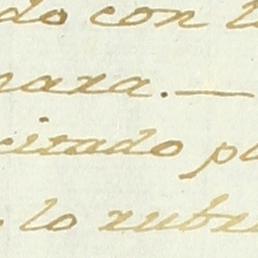 do con l
nara.—
citado pl
lo rubri